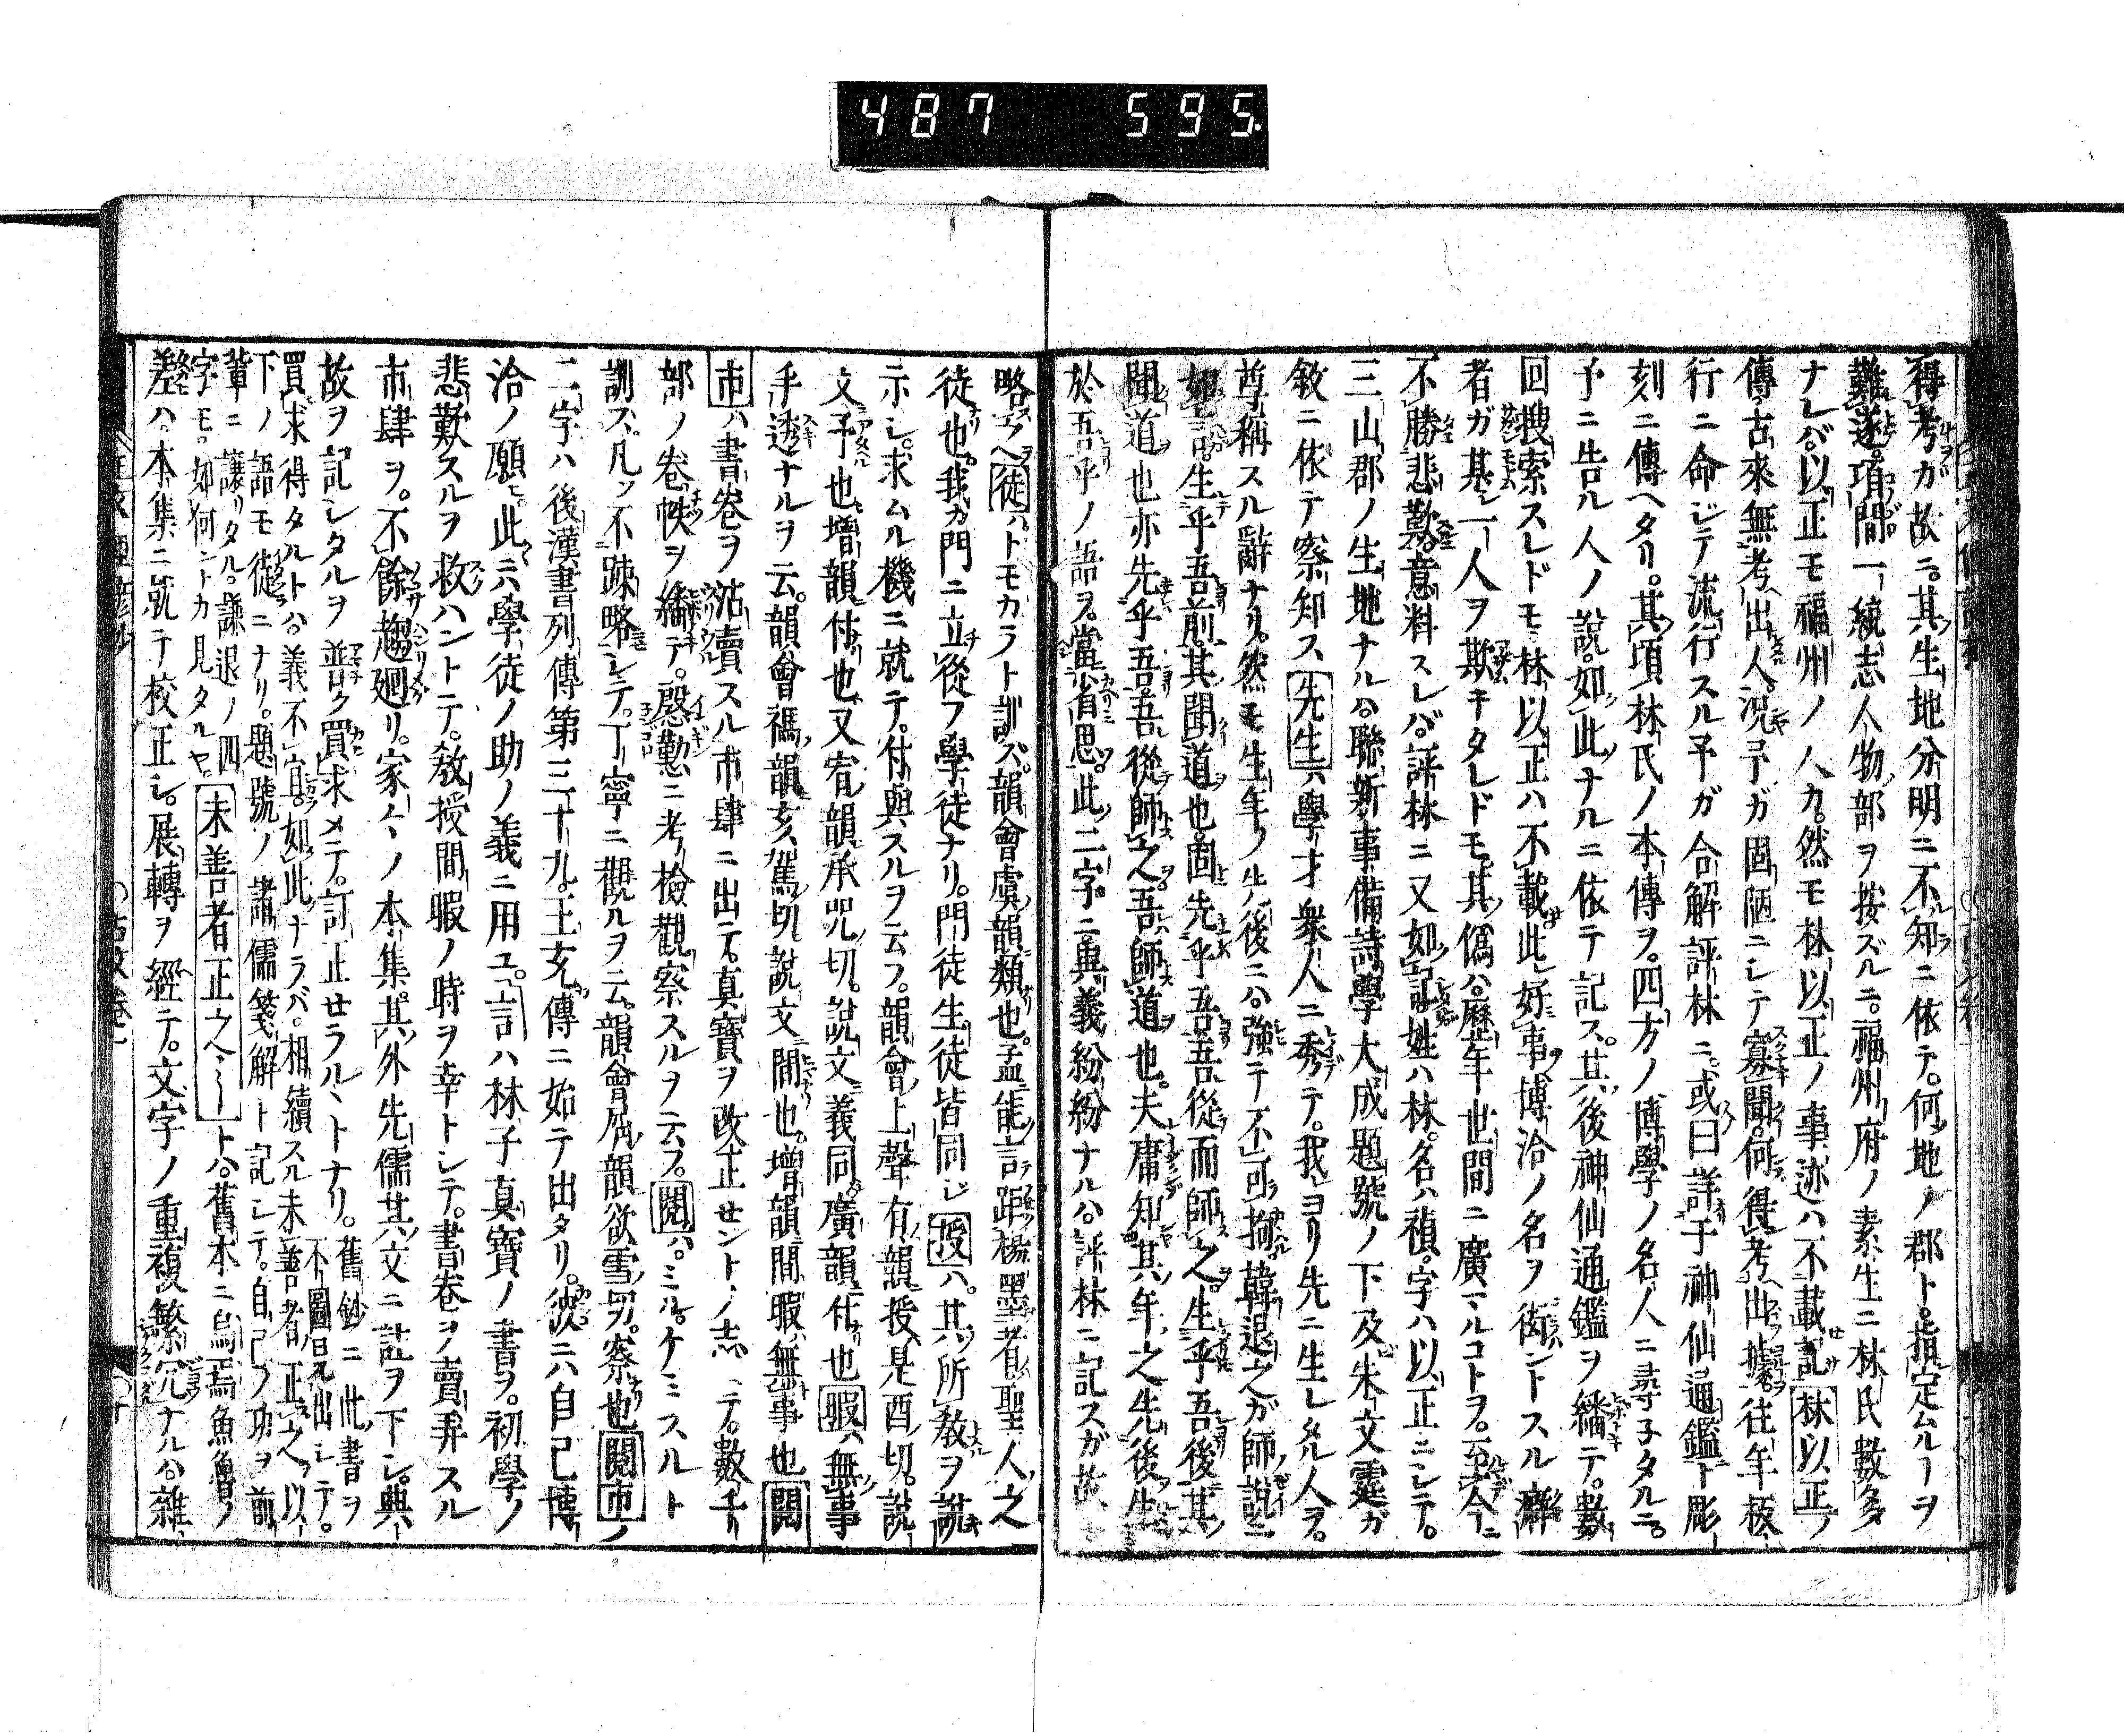 487 595.
得考ガ故ニ。其生地分明ニ不知ニ依テ。何地ノ郡ト指定ムルヿヲ
難遂。項間一統志人物部ヲ按ズルニ。福州府ノ素生ニ林氏數多
ナレバ。以正モ福州ノ人カ。然モ林以正ノ事迹ハ不載記林以正ノ
傳古來無考出人。況予ガ固陋ニシテ寡聞。何得考出據。往年
行ニ命ジテ流行スル予ガ合解評林ニ。或曰詳于神仙通鑑ト彫
刻ニ傳ヘタリ。其項林氏ノ本傳ヲ。四方ノ博學ノ名人ニ尋子タルニ。
予ニ告ル人ノ說。如此ナルニ依テ記ス。其後神仙通鑑ヲ繙テ。數
回搜索スレドモ林以正ハ不載此好事博洽ノ名ヲ衒ントスル癖
者ガ基シ一人ヲ欺キタレドモ其僞ハ。歷年世間ニ廣マルコトヲ。至今ニ
不勝悲歎。意料スレバ。評林ニ又如記。姓ハ林。名ハ禎。字ハ以正ニシテ。
三山郡ノ生地ナルハ。聯新事備詩學大成題號ノ下及朱文霆ガ
敘ニ依テ察知ス先生ハ學才衆人ニ秀テ。我ヨリ先ニ生レタル人ヲ。
尊稱スル辭ナリ。然モ生年ノ先後ニハ。強テ不可拘。韓退之ガ師說ニ
如言。生乎吾前。其聞道也。固先乎吾。吾從而師之。生乎吾後。其
聞道也亦先乎吾。吾從師之。吾師道也。夫庸知其年之先後生
於吾乎ノ語ヲ。當省思。此二字ニ異義紛紛ナルハ。評林ニ記スガ故
略之徒ハトモカラト訓ズ。韻會虞韻類也。孟能言距楊墨者聖人之
徒也。我カ門ニ立從フ學徒ナリ。門徒生徒皆同ジ授ハ。其所教ヲ說
示シ。求ムル機ニ就テ。付與スルヲ云フ。韻會上聲有韻授是酉切。說
文予也增韻付也又宥韻承咒切。說文義同。廣韻付也暇ハ無事
手透ナルヲ云。韻會禡韻亥駕切說文閒也增韻閒暇無事也閱
市ハ書卷ヲ沽賣スル市肆ニ出テ。真寶ヲ改正セントノ志ニテ。數千
部ノ卷帙ヲ繙テ。慇懃ニ考檢觀察スルヲ云フ。閱ハ。ミル。ケミスルト
訓ス。凡ソ不疎略シテ。丁寧ニ觀ルヲ云。韻會屑韻欲雪切。察也閱市ノ
二字ハ後漢書列傳第三十九。王充傳ニ始テ出タリ。彼ニハ自己博
洽ノ願ヒ。此ニハ學徒ノ助ノ義ニ用ユ。言ハ林子真寶ノ書ヲ。初學ノ
悲歎スルヲ救ハントテ。教授閒暇ノ時ヲ幸トシテ。書卷ヲ賣弄スル
市肆ヲ。不餘趨廻リ。家々ノ本集。其外先儒其文ニ註ヲ下シ。典
故ヲ記シタルヲ普ク買求メテ。訂正セラルヽトナリ。舊鈔ニ此書ヲ
買求得タルトハ。義不宜。如此ナラバ。相續スル未善者正之以
下ノ語モ徒ニナリ。題號ノ諸儒箋解ト記シテ。自己ノ功ヲ前
輩ニ讓リタル。謙退ノ四
字モ。如何ントカ見タルヤ。未善者正之トハ。舊本ニ烏焉魚魯ノ
差ハ。本集ニ就テ校正シ。展轉ヲ經テ。文字ノ重複繁冗ナルハ。雜